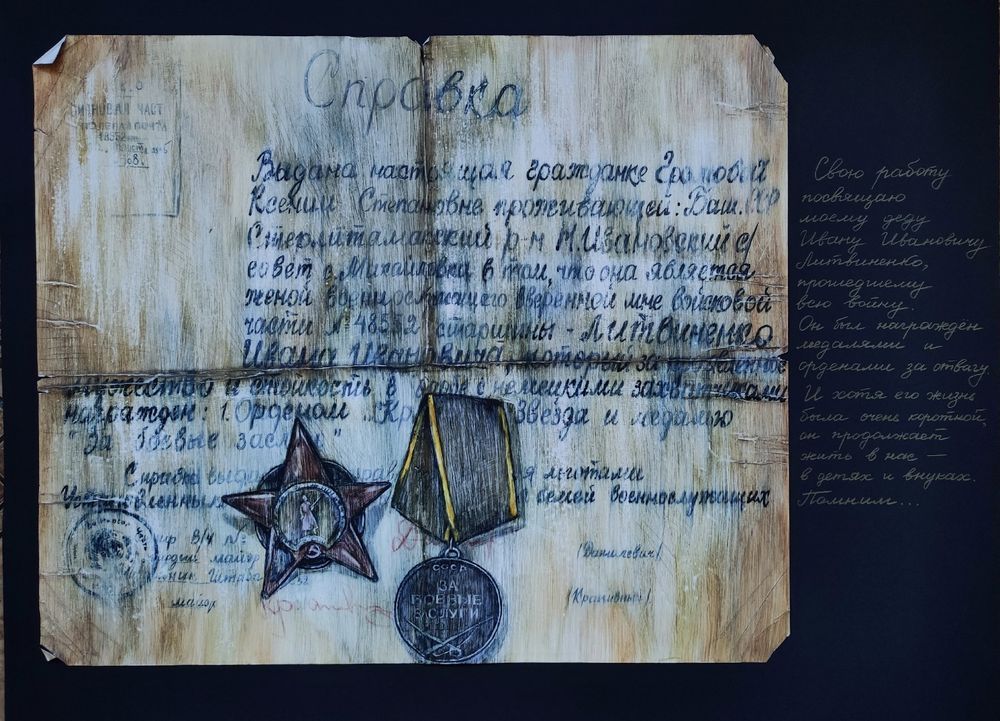 Справка
ЧАСТ
ПОЧТА
Выдана настоящая гражданке Громовой
Ксении Степановне проживающей: Баш. ССР
Стерлитамакский р-н Н.Ивановский с/
совет с. Михайловка в том, что она является
женой военнослужащего вверенной мне войсковой
части № 48552 старшины - Литвиненко
Ивана Ивановича, который за проявленное
мужество и стойкость в борьбе с немецкими захватчиками
награжден: 1. Орденом "Кр Звезда и медалью
"За боевые засл "
Справка выда льготами
Установленным семей военнослужащих
В/Ч №
майор
Штаба
майор
(Данилевич)
(Крапивный)
СССР
ЗА
БОЕВЫЕ
ЗАСЛУГИ
Свою работу
посвящаю
моему деду
Ивану Ивановичу
Литвиненко,
прошедшему
всю войну.
Он был награждён
медалями и
орденами за отвагу.
И хотя его жизнь
была очень короткой,
он продолжает
жить в нас —
в детях и внуках.
Помним...